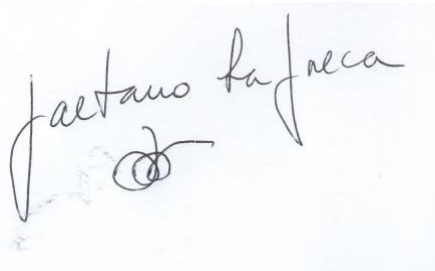 Gaetano La Greca